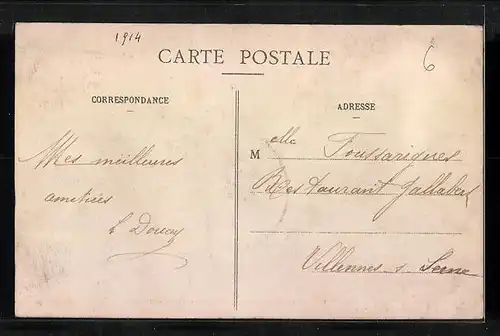 1914
CARTE POSTALE
6
CORRESPONDANCE
Mes meilleures
ametiées
L Douay
ADRESSE
Melle Toussarignes
Restaurant Gallabert
Villennes s. Seine